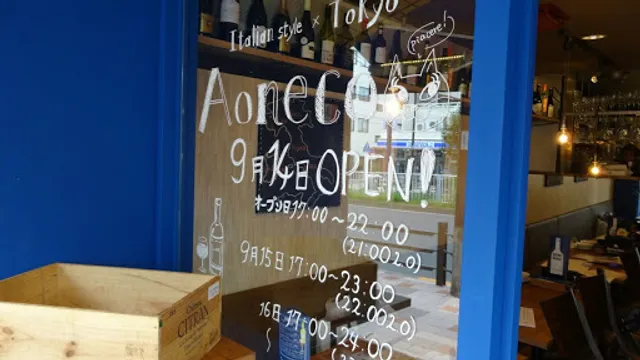 Italian style × Tokyo
piacere!
Aoneco
9月14日OPEN!
オープン日17:00〜22:00
(21:00L.O)
9月15日17:00〜23:00
(22:00L.O)
16日17:00〜24:00
〜
CITRAN